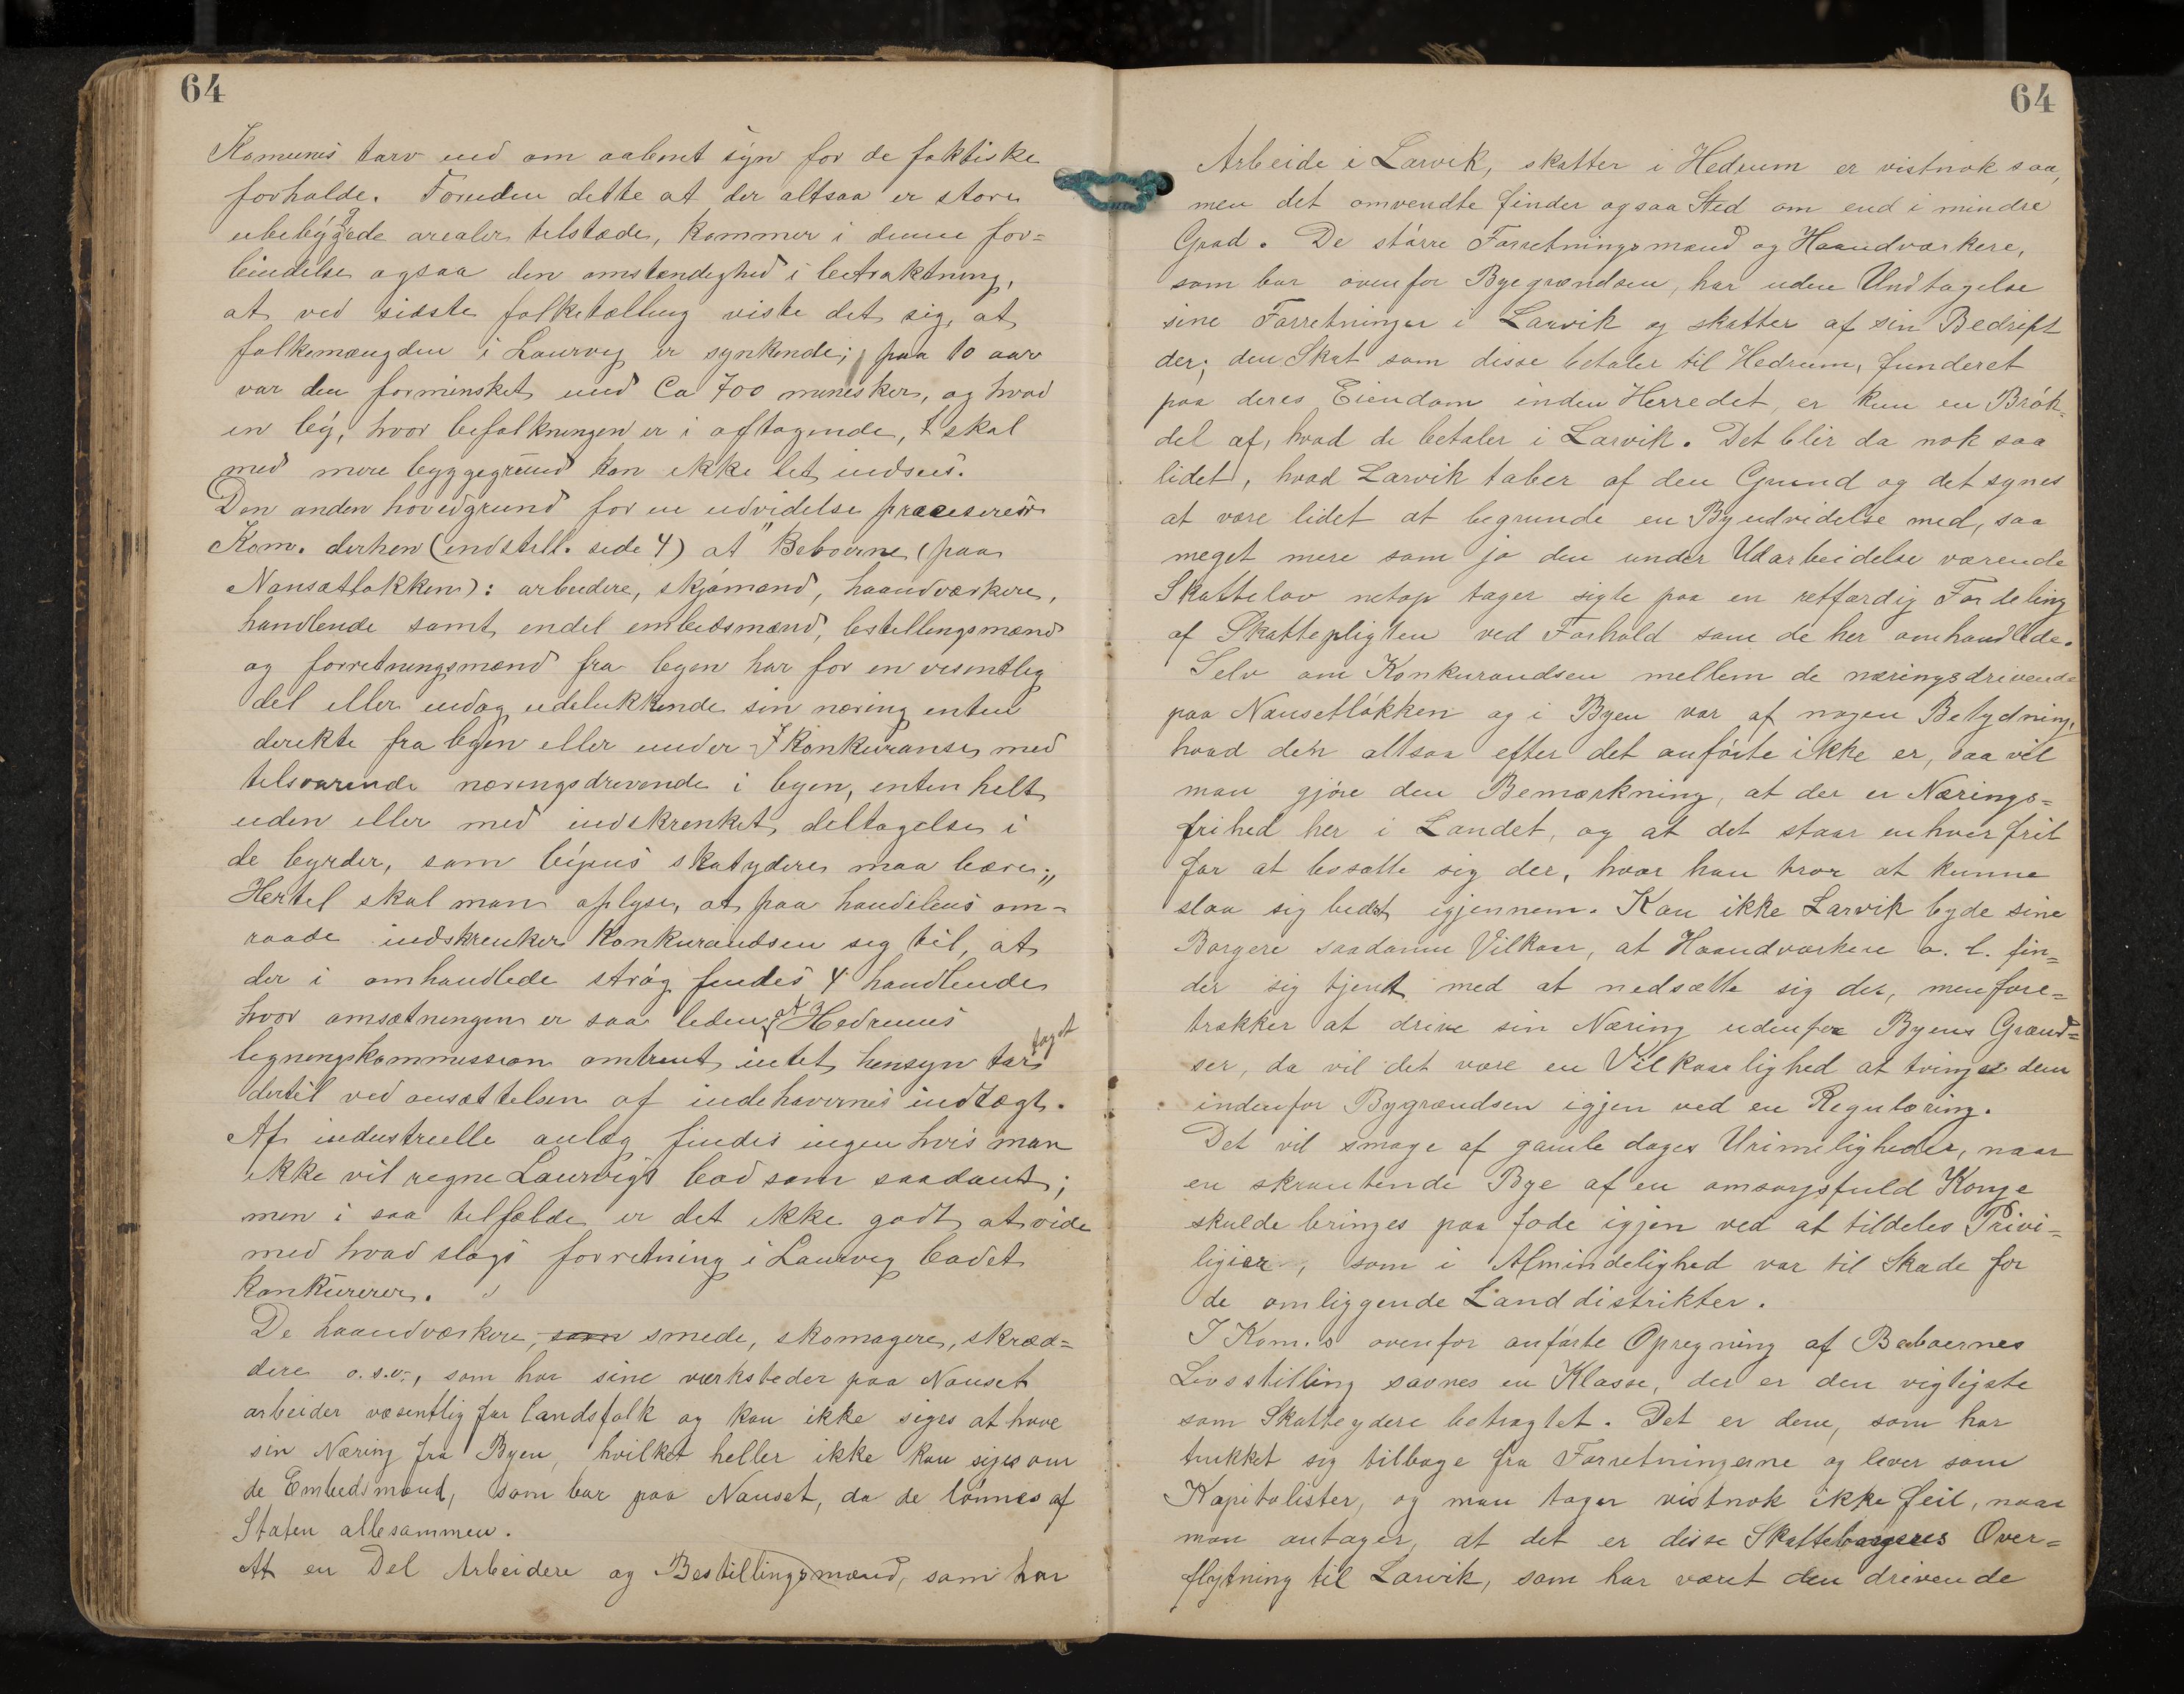 64
Komunes tarv end om aabent syn for de faktiske
forholde. Foruden dette at der altsaa er store
ubebyggede arealer tilstæde, kommer i denne for=
bindelse ogsaa den omstændighed i betraktning,
at ved sidste folketælling viste det sig, at
folkemængden i Laurvig er synkende; paa 10 aar
var den forminsket med Ca 700 mennesker, og hvad
en by, hvor befolkningen er i aftagende, skal
med mere byggegrund kan ikke let indsees.
Den anden hovedgrund for en udvidelse præciserer
Kom. derhen (indstill. side 4) at "Beboerne (paa
Nansetløkken): arbeidere, sjømænd, haandværkere,
handlende samt endel embedsmænd, bestillingsmænd
og forretningsmænd fra byen har for en vesentlig
del eller endog udelukkende sin næring enten
direkte fra byen eller under konkuranse med
tilsvarende næringsdrivende i byen, enten helt
uden eller med indskrenket deltagelse i
de byrder, som byens skatydere maa bære;"
Hertil skal man oplyse, at paa handelens om=
raade indskrenker konkurandsen sig til, at
der i omhandlede strøg findes 4 handlende
hvor omsætningen er saa liden, at Hedrums
ligningskommission omtrent intet hensyn har taget
dertil ved ansættelsen af indehavernes indtægt.
Af industrielle anlæg findes ingen hvis man
ikke vil regne Laurvigs bad som saadant;
men i saa tilfælde er det ikke godt at vide
med hvad slags forretning i Laurvig badet
konkurerer.
De haandværkere, som smede, skomagere, skræd=
dere o.s.v., som har sine værksteder paa Nanset
arbeider væsentlig for landsfolk og kan ikke siges at have
sin Næring fra Byen, hvilket heller ikke kan siges om
de Embedsmænd, som bor paa Nanset, da de lønnes af
Staten allesammen.
At en Del Arbeidere og Bestillingsmænd, som har
64
Arbeide i Larvik, skatter i Hedrum er vistnok saa,
men det omvendte finder ogsaa Sted om end i mindre
Grad. De større Forretningsmænd og Haandværkere,
som bor ovenfor Byegrændsen, har uden Undtagelse
sine Forretninger i Larvik og skatter af sin Bedrift
der; den Skat som disse betaler til Hedrum, funderet
paa deres Eiendom inden Herredet, er kun en Brøk=
del af, hvad de betaler i Larvik. Det blir da nok saa
lidet, hvad Larvik taber af den Grund og det synes
at være lidet at begrunde en Byudvidelse med, saa
meget mere som jo den under Udarbeidelse værende
Skattelov netop tager sigte paa en retfærdig Fordeling
af Skattepligten ved Forhold som de her omhandlede.
Selv om Konkurandsen mellem de næringsdrivende
paa Nansetløkken og i Byen var af nogen Betydning,
hvad den altsaa efter det anførte ikke er, saa vil
man gjøre den Bemærkning, at der er Nærings=
frihed her i Landet, og at det staar enhver frit
for at bosætte sig der, hvor han tror at kunne
slaa sig bedst igjennem. Kan ikke Larvik byde sine
Borgere saadanne Vilkaar, at Haandværkere o. l. fin=
der sig tjent med at nedsætte sig der, men fore=
trækker at drive sin Næring udenfor Byens Grænd=
ser, da vil det være en Vilkaarlighed at tvinge dem
indenfor Bygrændsen igjen ved en Regulæring.
Det vil smage af gamle dages Urimeligheder, naar
en skrantende Bye af en omsorgsfuld Konge
skulde bringes paa fode igjen ved at tildeles Privi=
ligier, som i Almindelighed var til Skade for
de omliggende Landdistrikter.
I Kom.s ovenfor anførte Opregning af Beboernes
Livsstilling savnes en Klasse, der er den vigtigste
som Skatteydere betragtet. Det er dem, som har
trukket sig tilbage fra Forretningerne og lever som
Kapitalister, og man tager vistnok ikke feil, naar
man antager, at det er disse Skatteborgeres Over=
flytning til Larvik, som har været den drivende